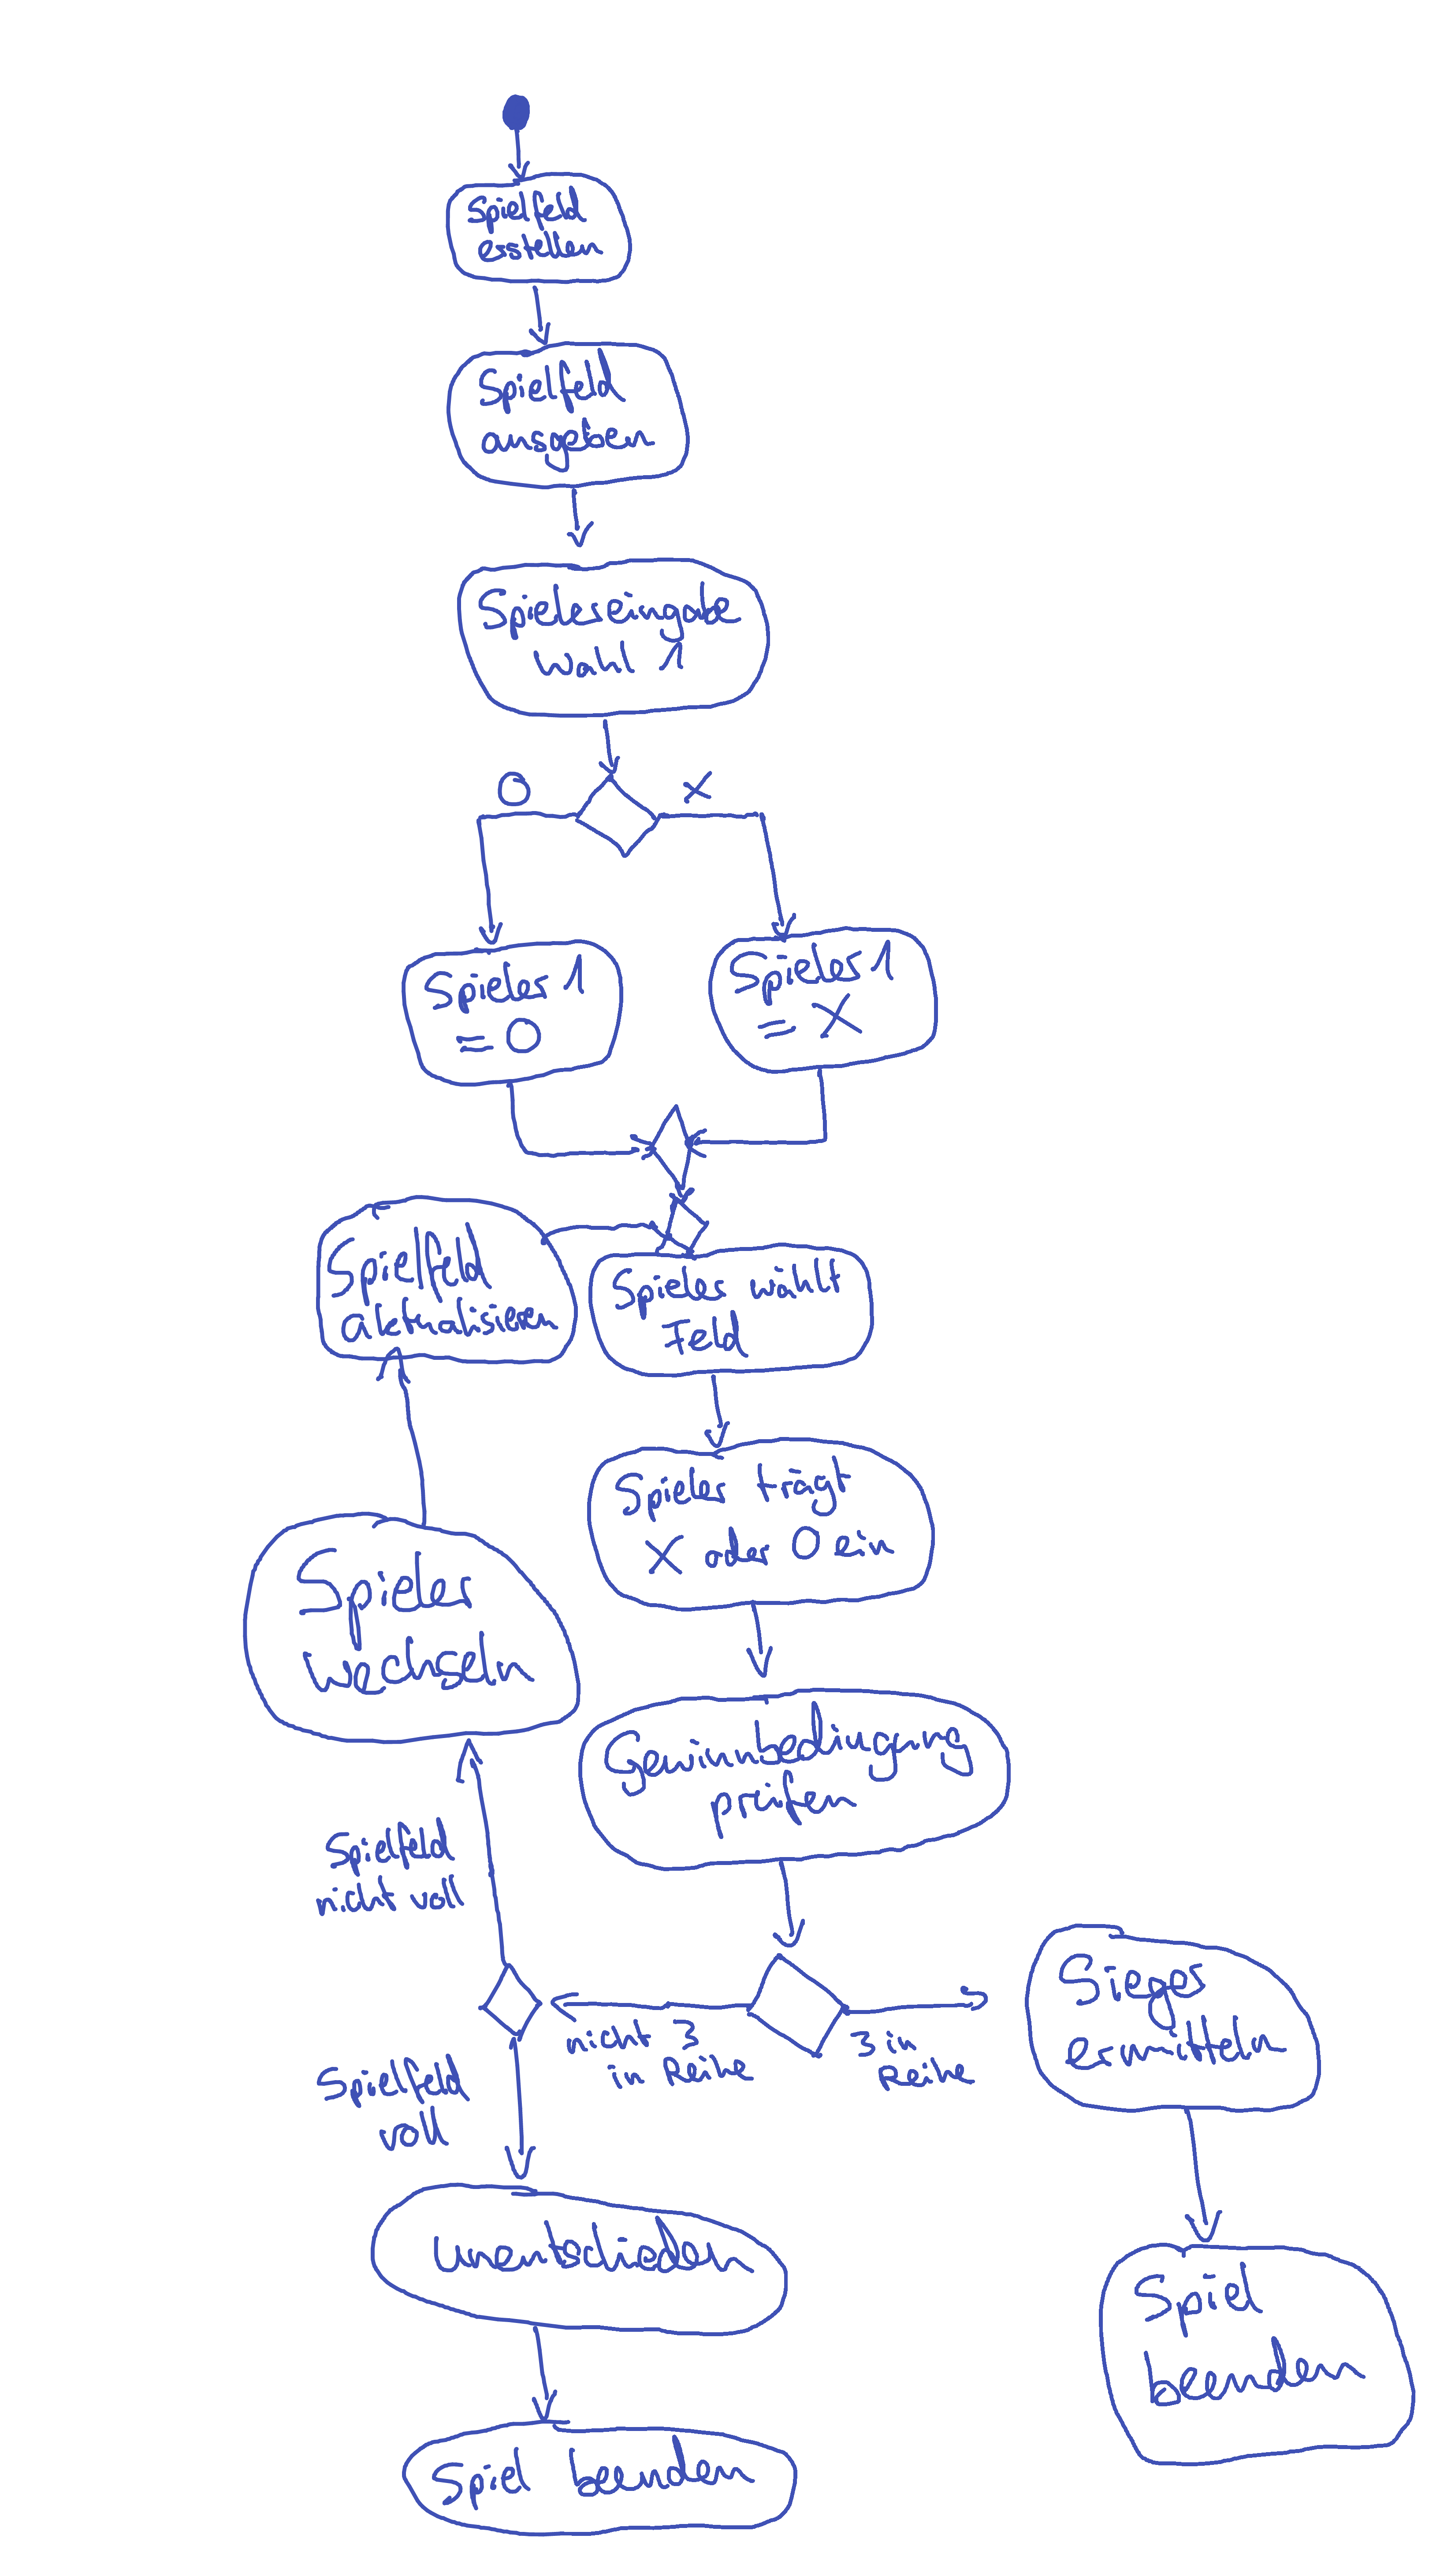 Spielfeld
erstellen
Spielfeld
ausgeben
Spielereingabe
Wahl 1
O
X
Spieler 1
= O
Spieler 1
= X
Spielfeld
aktualisieren
Spieler wählt
Feld
Spieler trägt
X oder O ein
Spieler
wechseln
Gewinnbedingung
prüfen
Spielfeld
nicht voll
nicht 3
in Reihe
3 in
Reihe
Sieger
ermitteln
Spielfeld
voll
unentschieden
Spiel
beenden
Spiel beenden